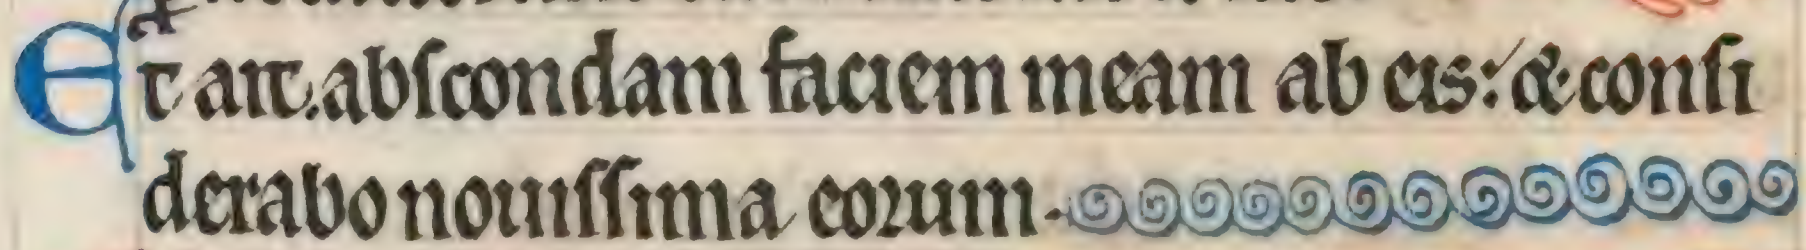 Et ait. abſcondam faciem meam ab eis: & conſi
derabo nouiſſima eorum.